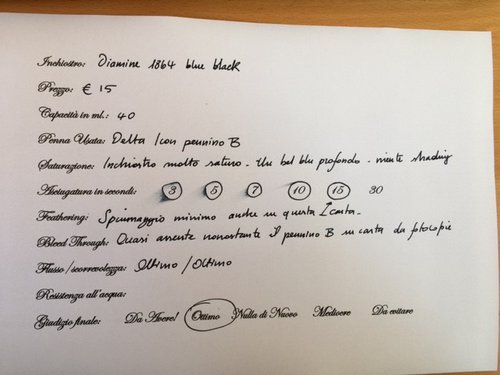 Inchiostro: Diamine 1864 blue black
Prezzo: € 15
Capacità in ml.: 40
Penna Usata: Delta / con pennino B
Saturazione: Inchiostro molto saturo - Un bel blu profondo - niente shading
Asciugatura in secondi: 3 5 7 10 15 30
Feathering: Spiumaggio minimo anche in questa carta -
Bleed Through: Quasi assente nonostante il pennino B in carta da fotocopie
Flusso / scorrevolezza: Ottimo / Ottimo
Resistenza all'acqua:
Giudizio finale: Da Avere! Ottimo Nulla di Nuovo Mediocre Da evitare